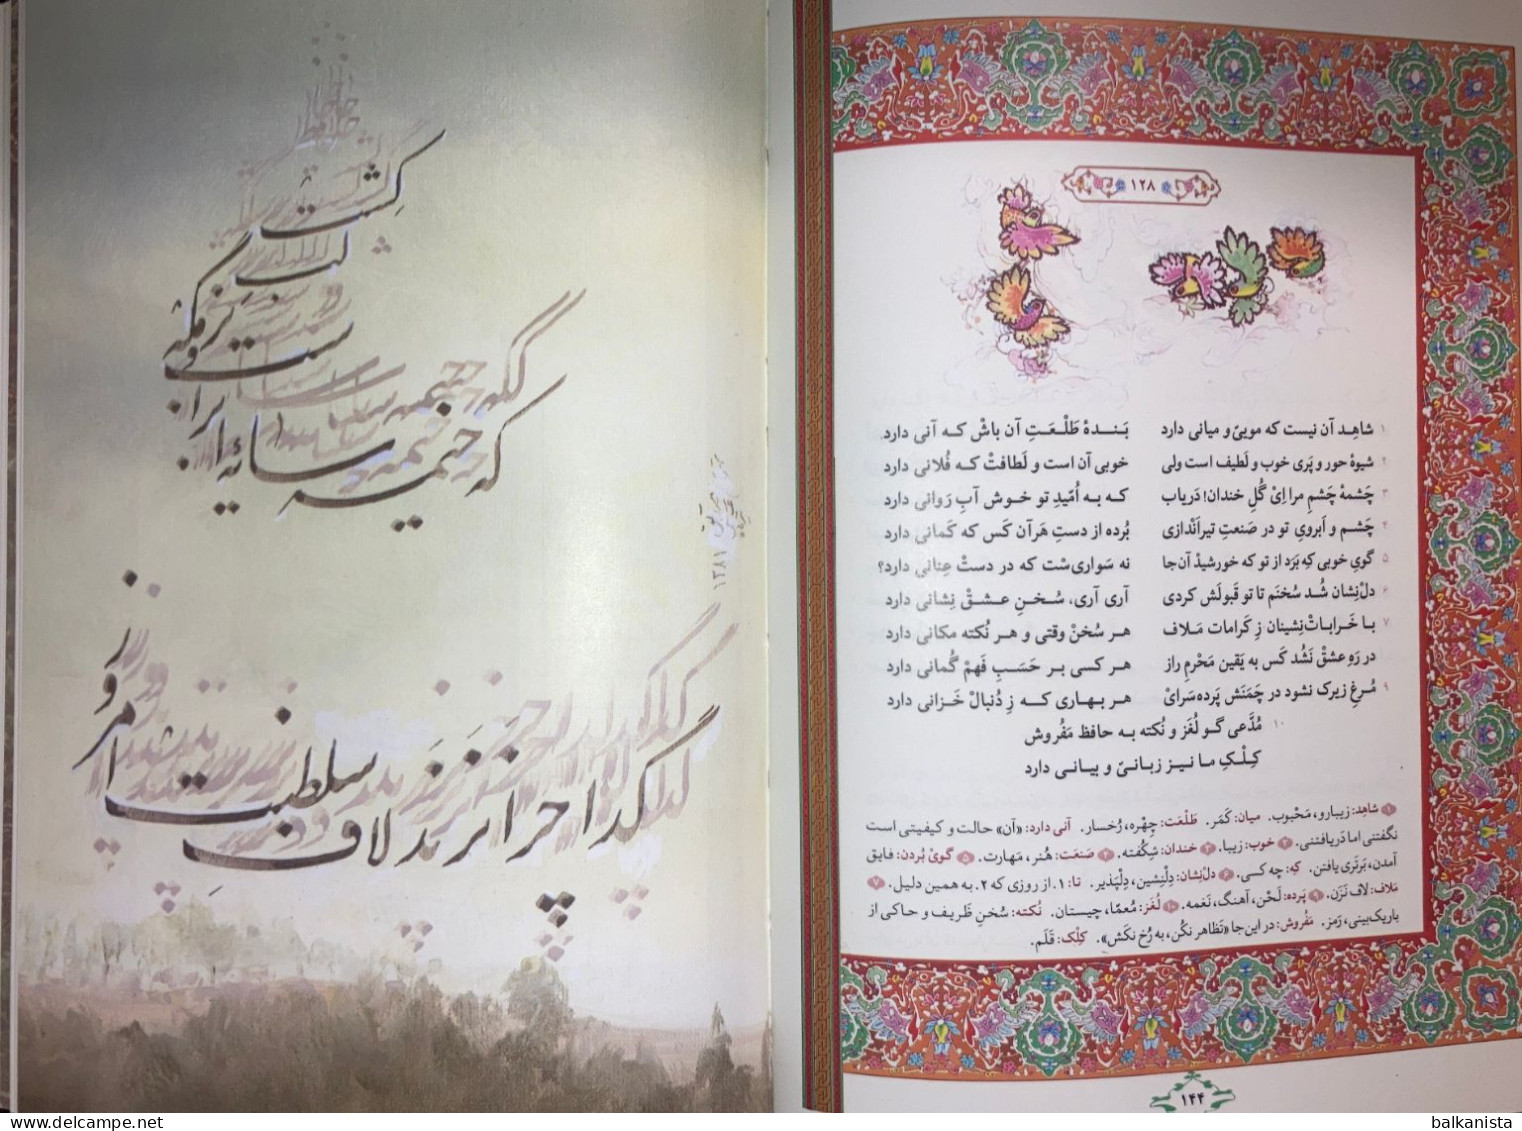 ۱۲۸
۱ شاهِد آن نیست که موییّ و میانی دارد بَـنـدهٔ طَلْـعَـتِ آن باشْ کـه آنی دارد
۲ شیوهٔ حور و پَری خوب و لَطیف است ولی خوبی آن است و لَطافتْ کـه فُلانی دارد
۳ چَشمهٔ چَشمِ مرا اِیْ گُلِ خندان! دَریاب کـه بـه اُمّیدِ تو خـوش آبِ رَوانی دارد
۴ چَشـم و اَبرویِ تو در صَنعتِ تیراَنْدازی بُرده از دستِ هَرآن کَس که کَمانی دارد
۵ گویِ خوبی کِه بَرَد از تو که خورشیدْ آن‌جا نه سَواری‌سْت که در دستْ عِنانی دارد؟
۶ دلْ‌نِشان شُـد سُخنَم تا تو قَبولَش کردی آری آری، سُـخـنِ عـشـقْ نِشانی دارد
۷ بـا خَرابـاتْ‌نِشینان زِ کَرامات مَـلاف هـر سُخنْ وقتی و هـر نُکته مکانی دارد
در رَهِ عشقْ نَشُد کَس به یَقین مَحْرمِ راز هـر کسی بـر حَسَبِ فَهمْ گُمانی دارد
۹ مُـرغِ زیرک نشود در چَمَنَش پَرده‌سَرایْ هـر بهـاری کـه زِ دُنبالْ خَـزانی دارد
۱۰ مُدَّعی گـو لُغَز و نُکته بـه حافظ مَفْروش
کِـلْـکِ مـا نـیـز زبـانـیّ و بـیـانـی دارد
۱ شاهِد: زیبارو، مَحْبوب. میان: کَمَر. طَلْعَت: چِهْره، رُخسار. آنی دارد: «آن» حالت و کیفیتی است
نگفتنی اما دَریافتنی. ۲ خوب: زیبا. ۳ خندان: شِکُفته. ۴ صَنعَت: هُنر، مَهارت. ۵ گویْ بُردن: فایق
آمدن، بَرتَری یافتن. کِه: چه کسی. ۶ دلْ‌نِشان: دلْنِشین، دلْپَذیر. تا: ۱. از روزی که ۲. به همین دلیل. ۷
مَلاف: لاف نَزَن. ۹ پَرده: لَحْن، آهنگ، نَغمه. ۱۰ لُغَز: مُعمّا، چیستان. نُکته: سُخنِ ظَریف و حاکی از
باریک‌بینی، رَمز. مَفْروش: در این‌جا «تَظاهر نکُن، به رُخ نکَش». کِلْک: قَلَم.
۱۴۴
کِشت
لبِ
بزمگه
ابر است و
که خیمه سایهٔ
گدا چرا نزند لافِ سلطنت امروز
۱۳۸۱
delcampe.net
balkanista